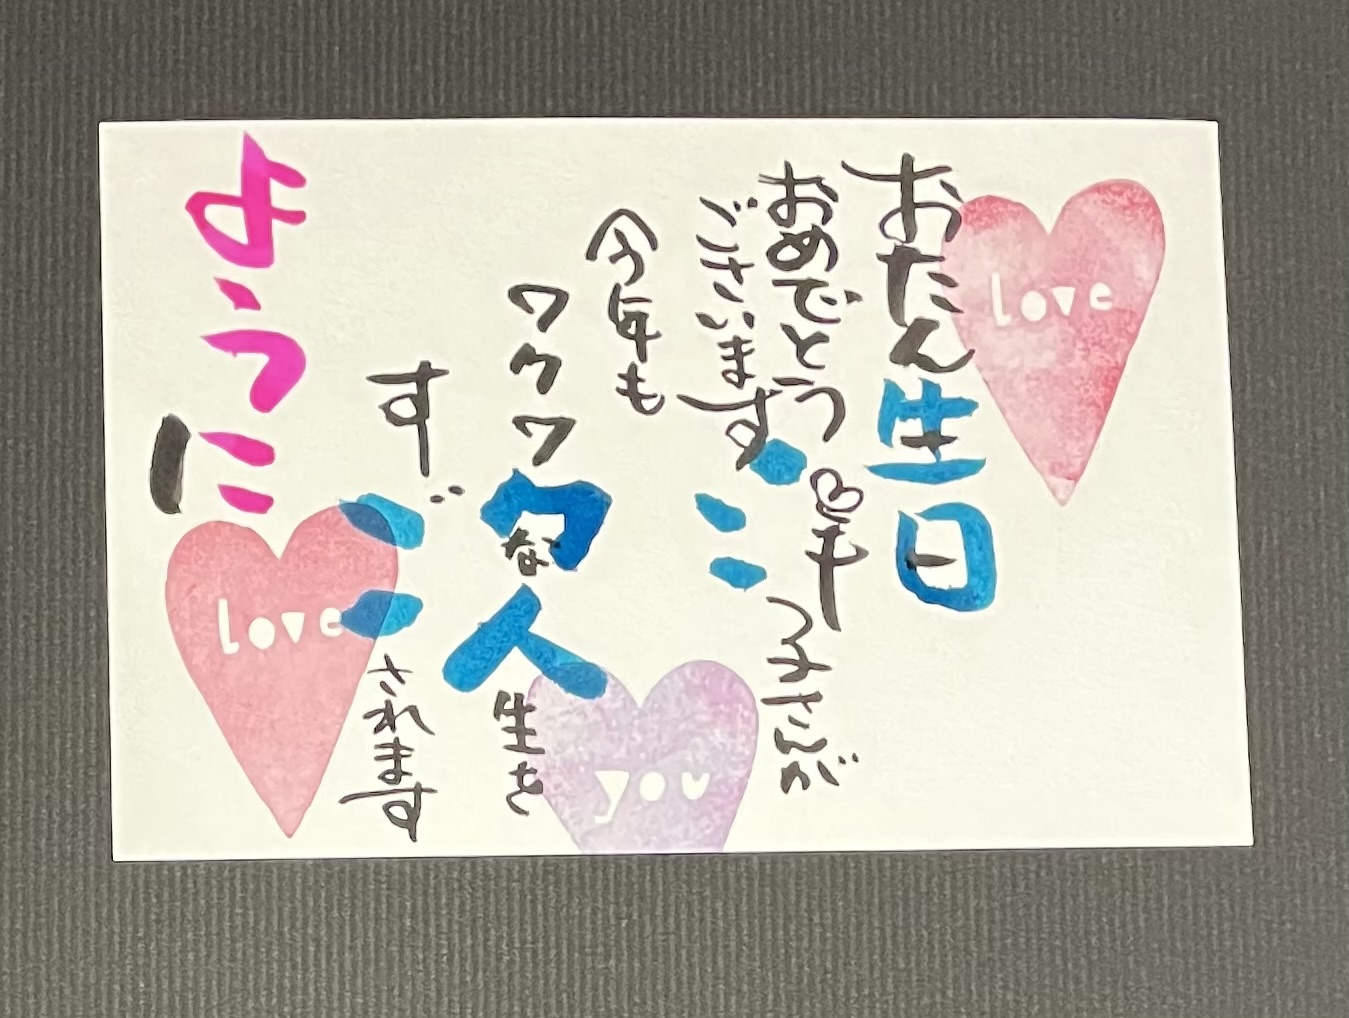 love
おたん生日
おめでとう
ございます
羊子さんが
今年も
ワクワクな人生を
すごされます
ように
you
love